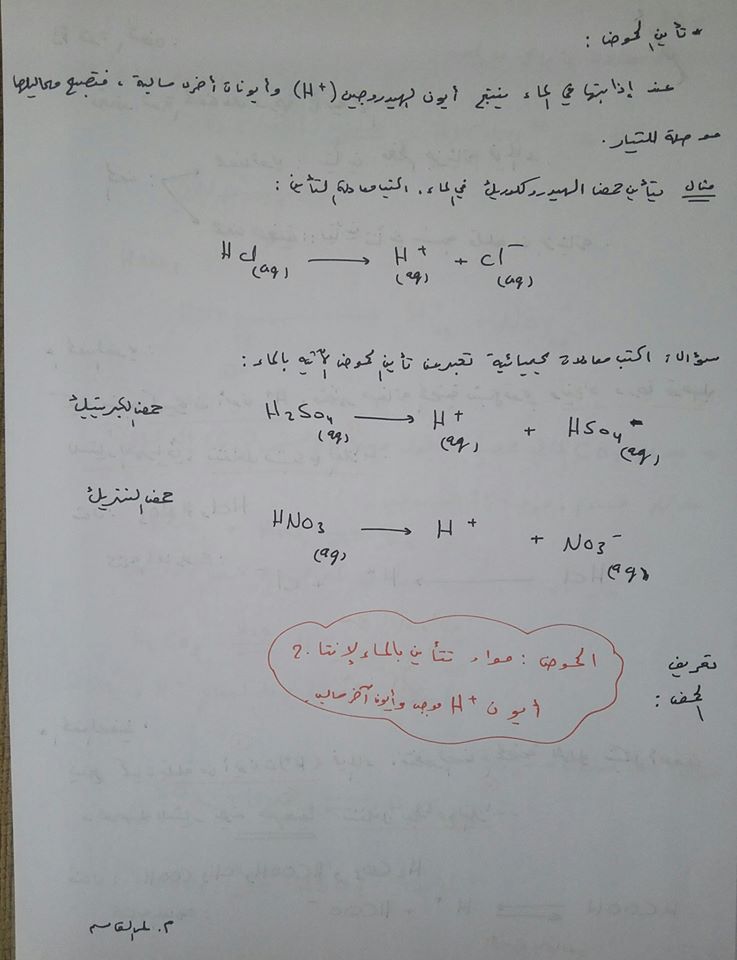 * تأين الحموض :
عند إذابتها في الماء ينتج أيون الهيدروجين (H+) وأيونات أخرى سالبة ، فتصبح محاليلها
موصلة للتيار.
مثال يتأين حمض الهيدروكلوريك في الماء. اكتب معادلة التأين :
HCl(aq) ⟶ H+(aq) + Cl−(aq)
سؤال : اكتب معادلة كيميائية تعبر عن تأين الحموض الآتية بالماء :
حمض الكبريتيك H2SO4(aq) ⟶ H+(aq) + HSO4−(aq)
حمض النتريك HNO3(aq) ⟶ H+ + NO3−(aq)
تعريف
الحمض :
الحموض : مواد تتأين بالماء لإنتاج
أيون H+ موجب وأيون آخر سالب.